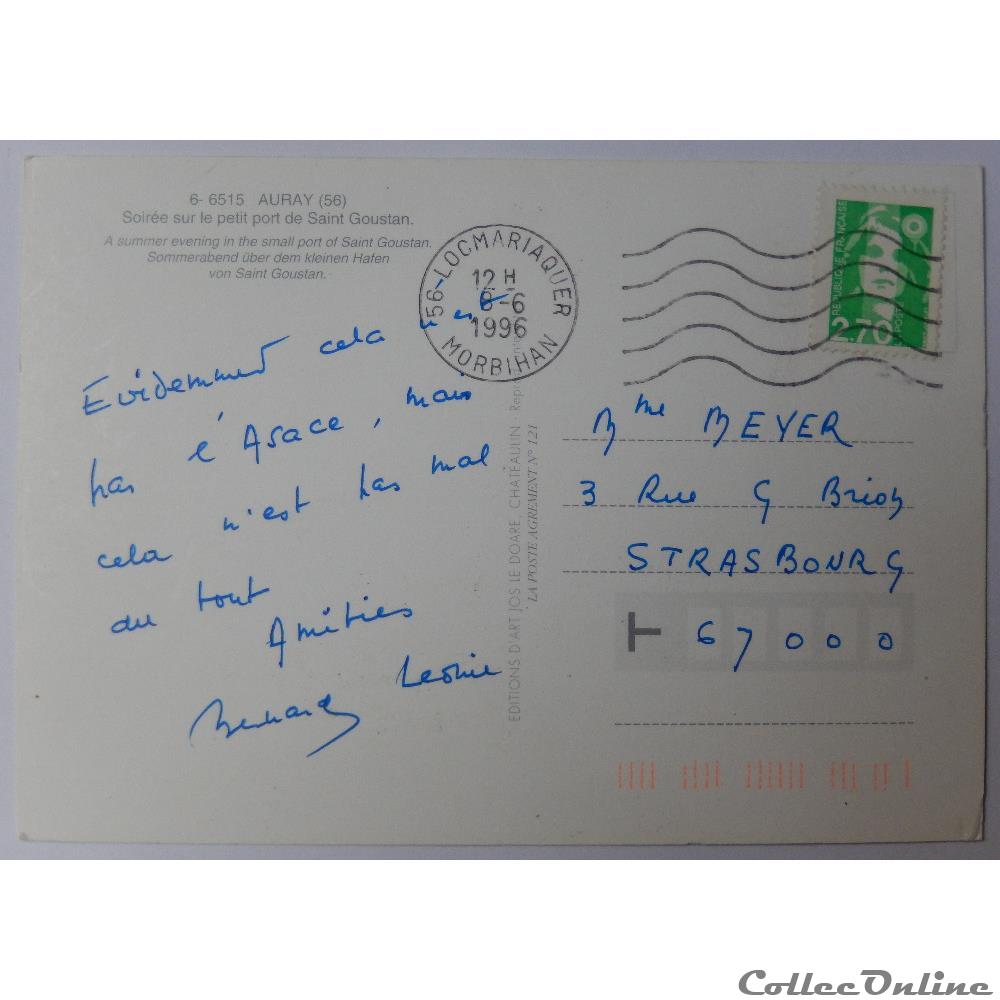 6- 6515 AURAY (56)
Soirée sur le petit port de Saint Goustan.
A summer evening in the small port of Saint Goustan.
Sommerabend über dem kleinen Hafen
von Saint Goustan.
Evidemment cela n'est
pas l'Asace, mais
cela n'est pas mal
du tout
Amitiés
Bernard Leonie
56-LOCMARIAQUER
12 H
8-6
1996
MORBIHAN
EDITIONS D'ART JOS LE DOARE, CHATEAULIN - Repro
LA POSTE AGREMENT N° 121
REPUBLIQUE FRANCAISE
2,70
POSTE
Mme MEYER
3 Rue G Brion
STRASBOURG
T 67000
CollecOnline